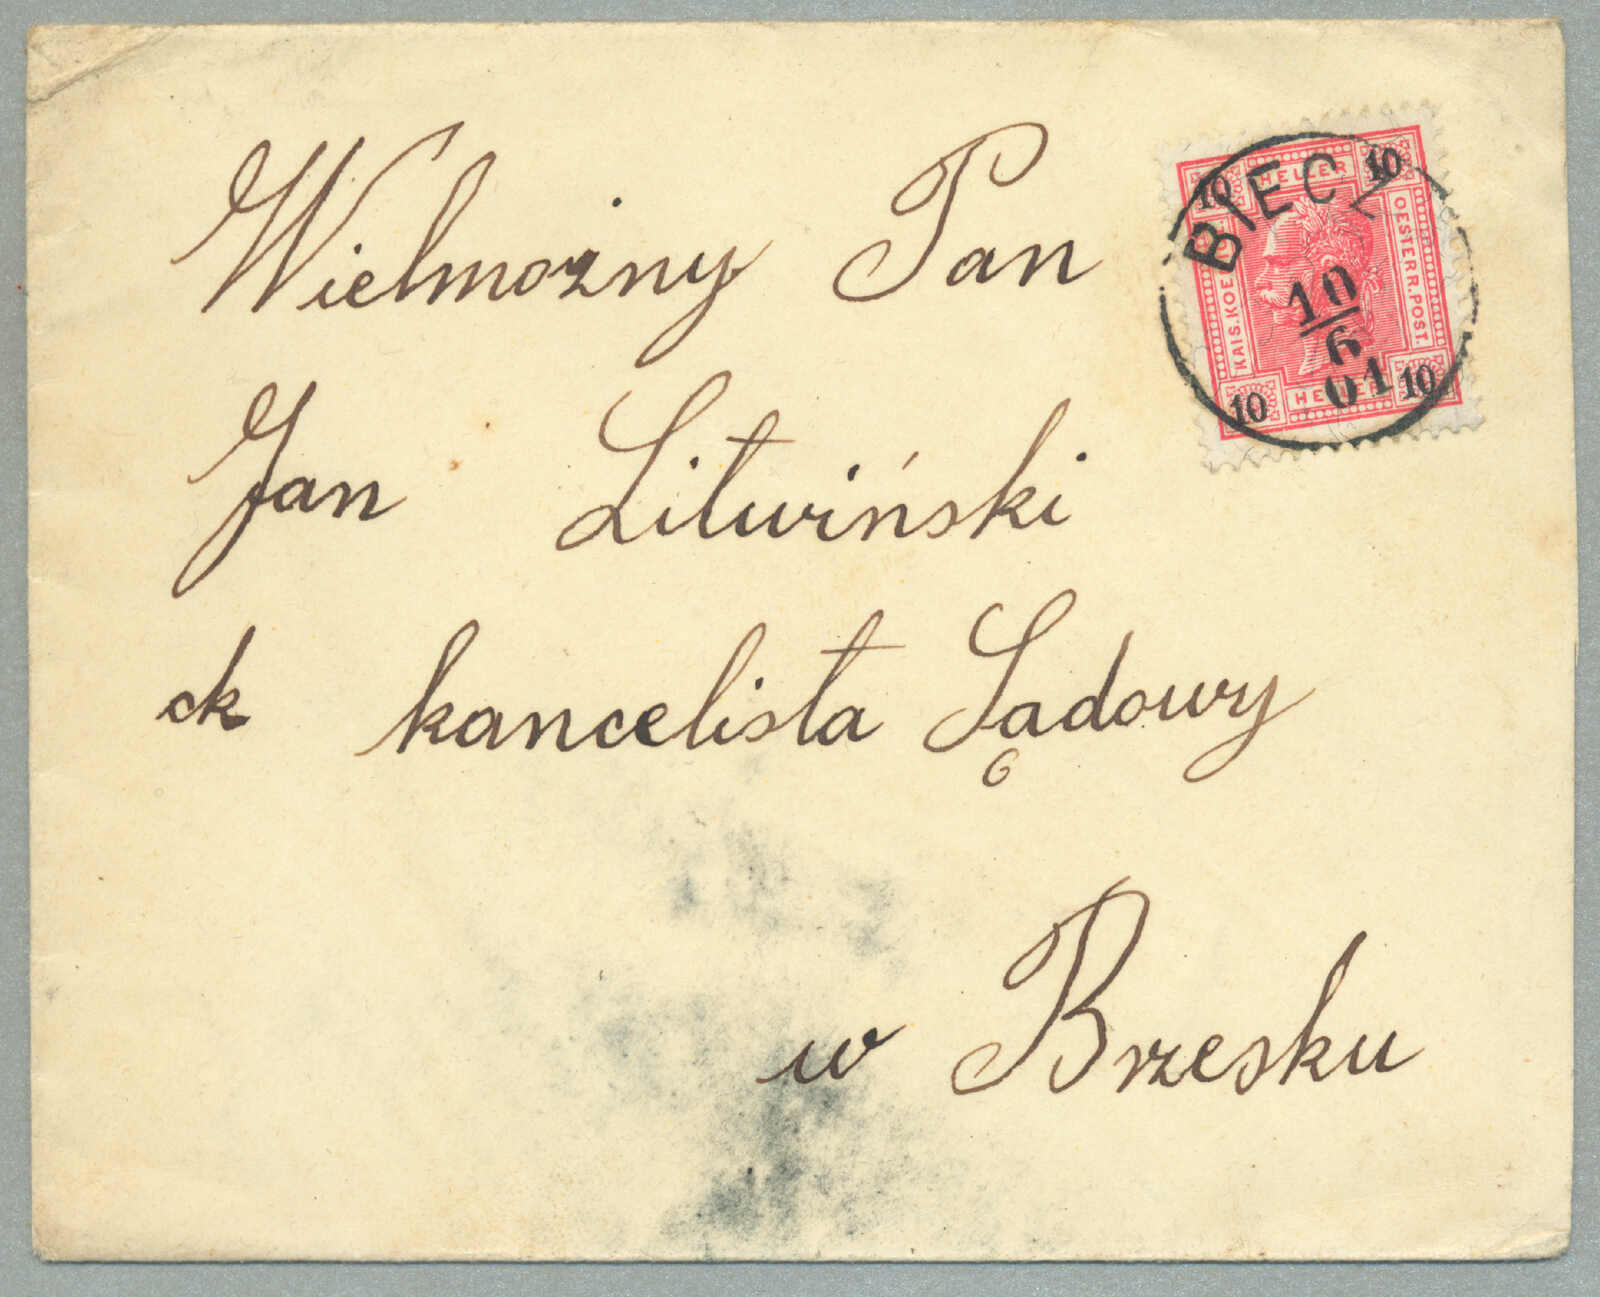 Wielmożny Pan
Jan Litwiński
ck kancelista Sądowy
w Brzesku
BIECZ
10
6
01
10 HELLER 10
KAIS. KOE
OESTERR. POST.
10 HELLER 10